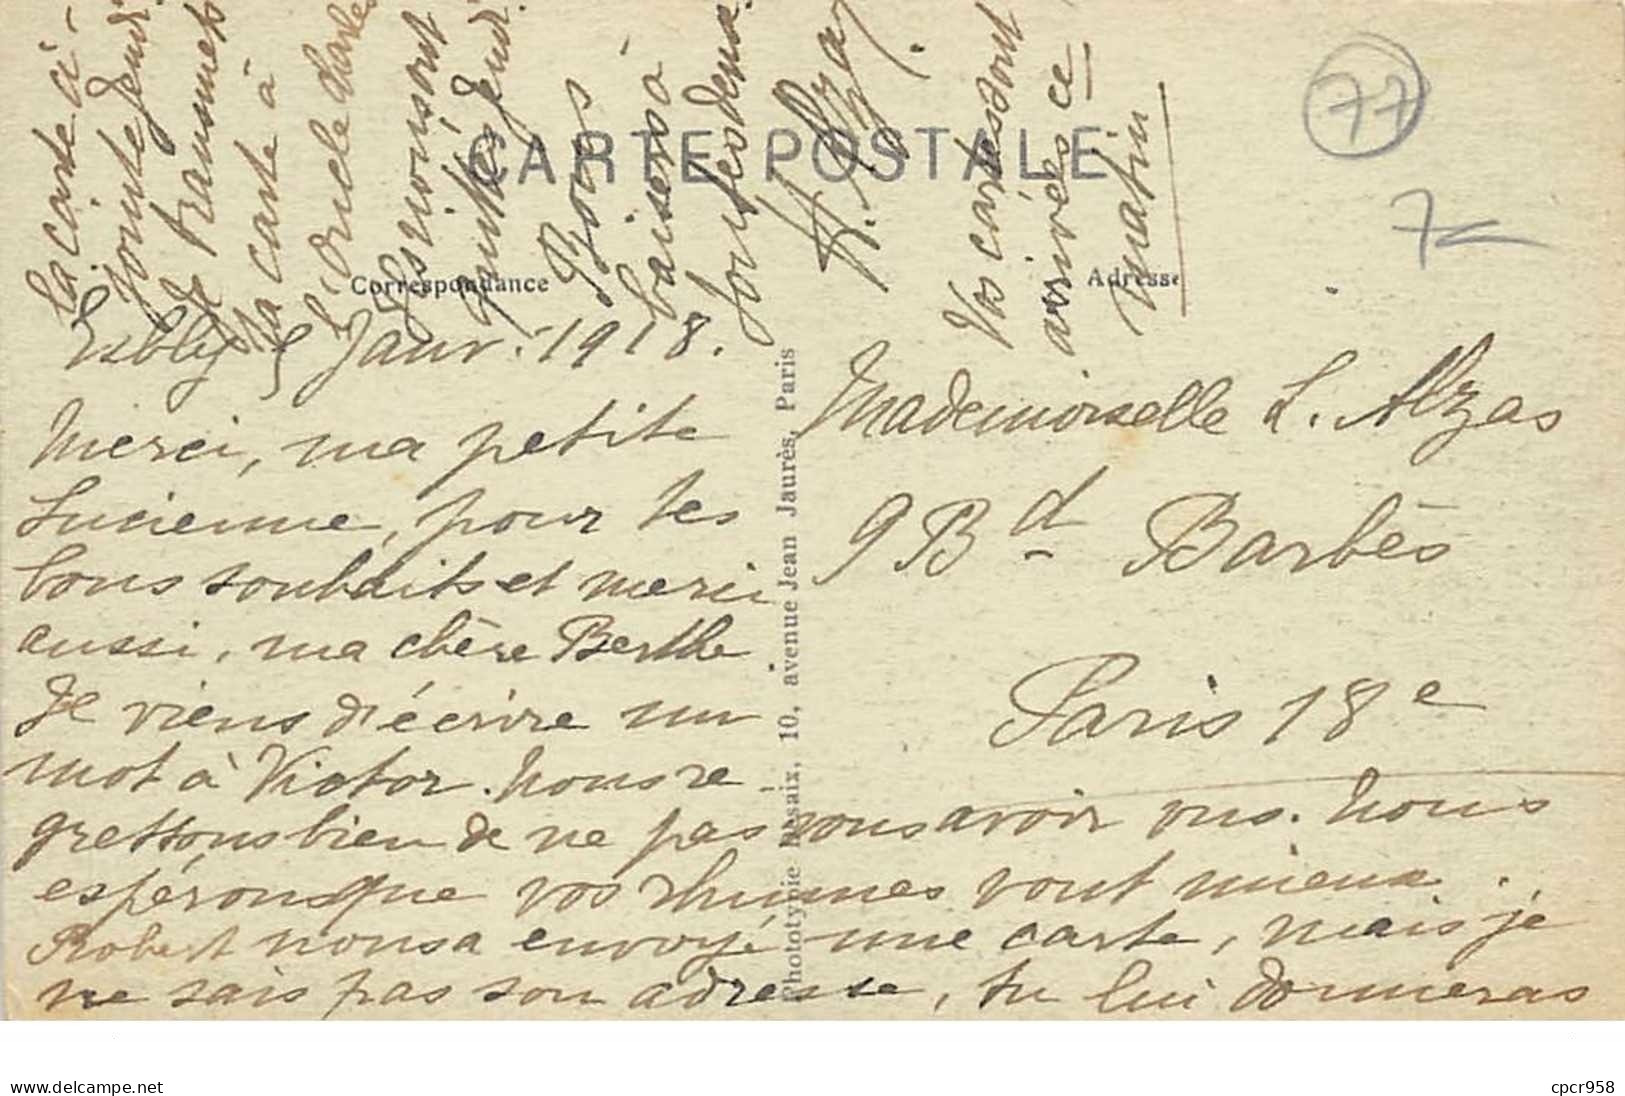 CARTE POSTALE
Correspondance
Adresse
77
7
Esbly 5 Janv. 1918.
Merci, ma petite
Lucienne, pour tes
bons souhaits et merci
aussi, ma chère Berthe
Je viens d'écrire un
mot à Victor. Nous re-
grettons bien de ne pas vous avoir vus. Nous
espérons que vos rhumes vont mieux.
Robert nous a envoyé une carte, mais je
ne sais pas son adresse, tu lui donneras
la carte ci-
jointe
Je transmets
ta carte à
l'oncle Charles
Bons
baisers à
toutes deux.
H. Alzas.
Vos cartes sont
arrivées ce
matin
Mademoiselle L. Alzas
9 Bd Barbès
Paris 18e
Phototypie Dessaix, 10, avenue Jean Jaurès, Paris
delcampe.net
cpcr958